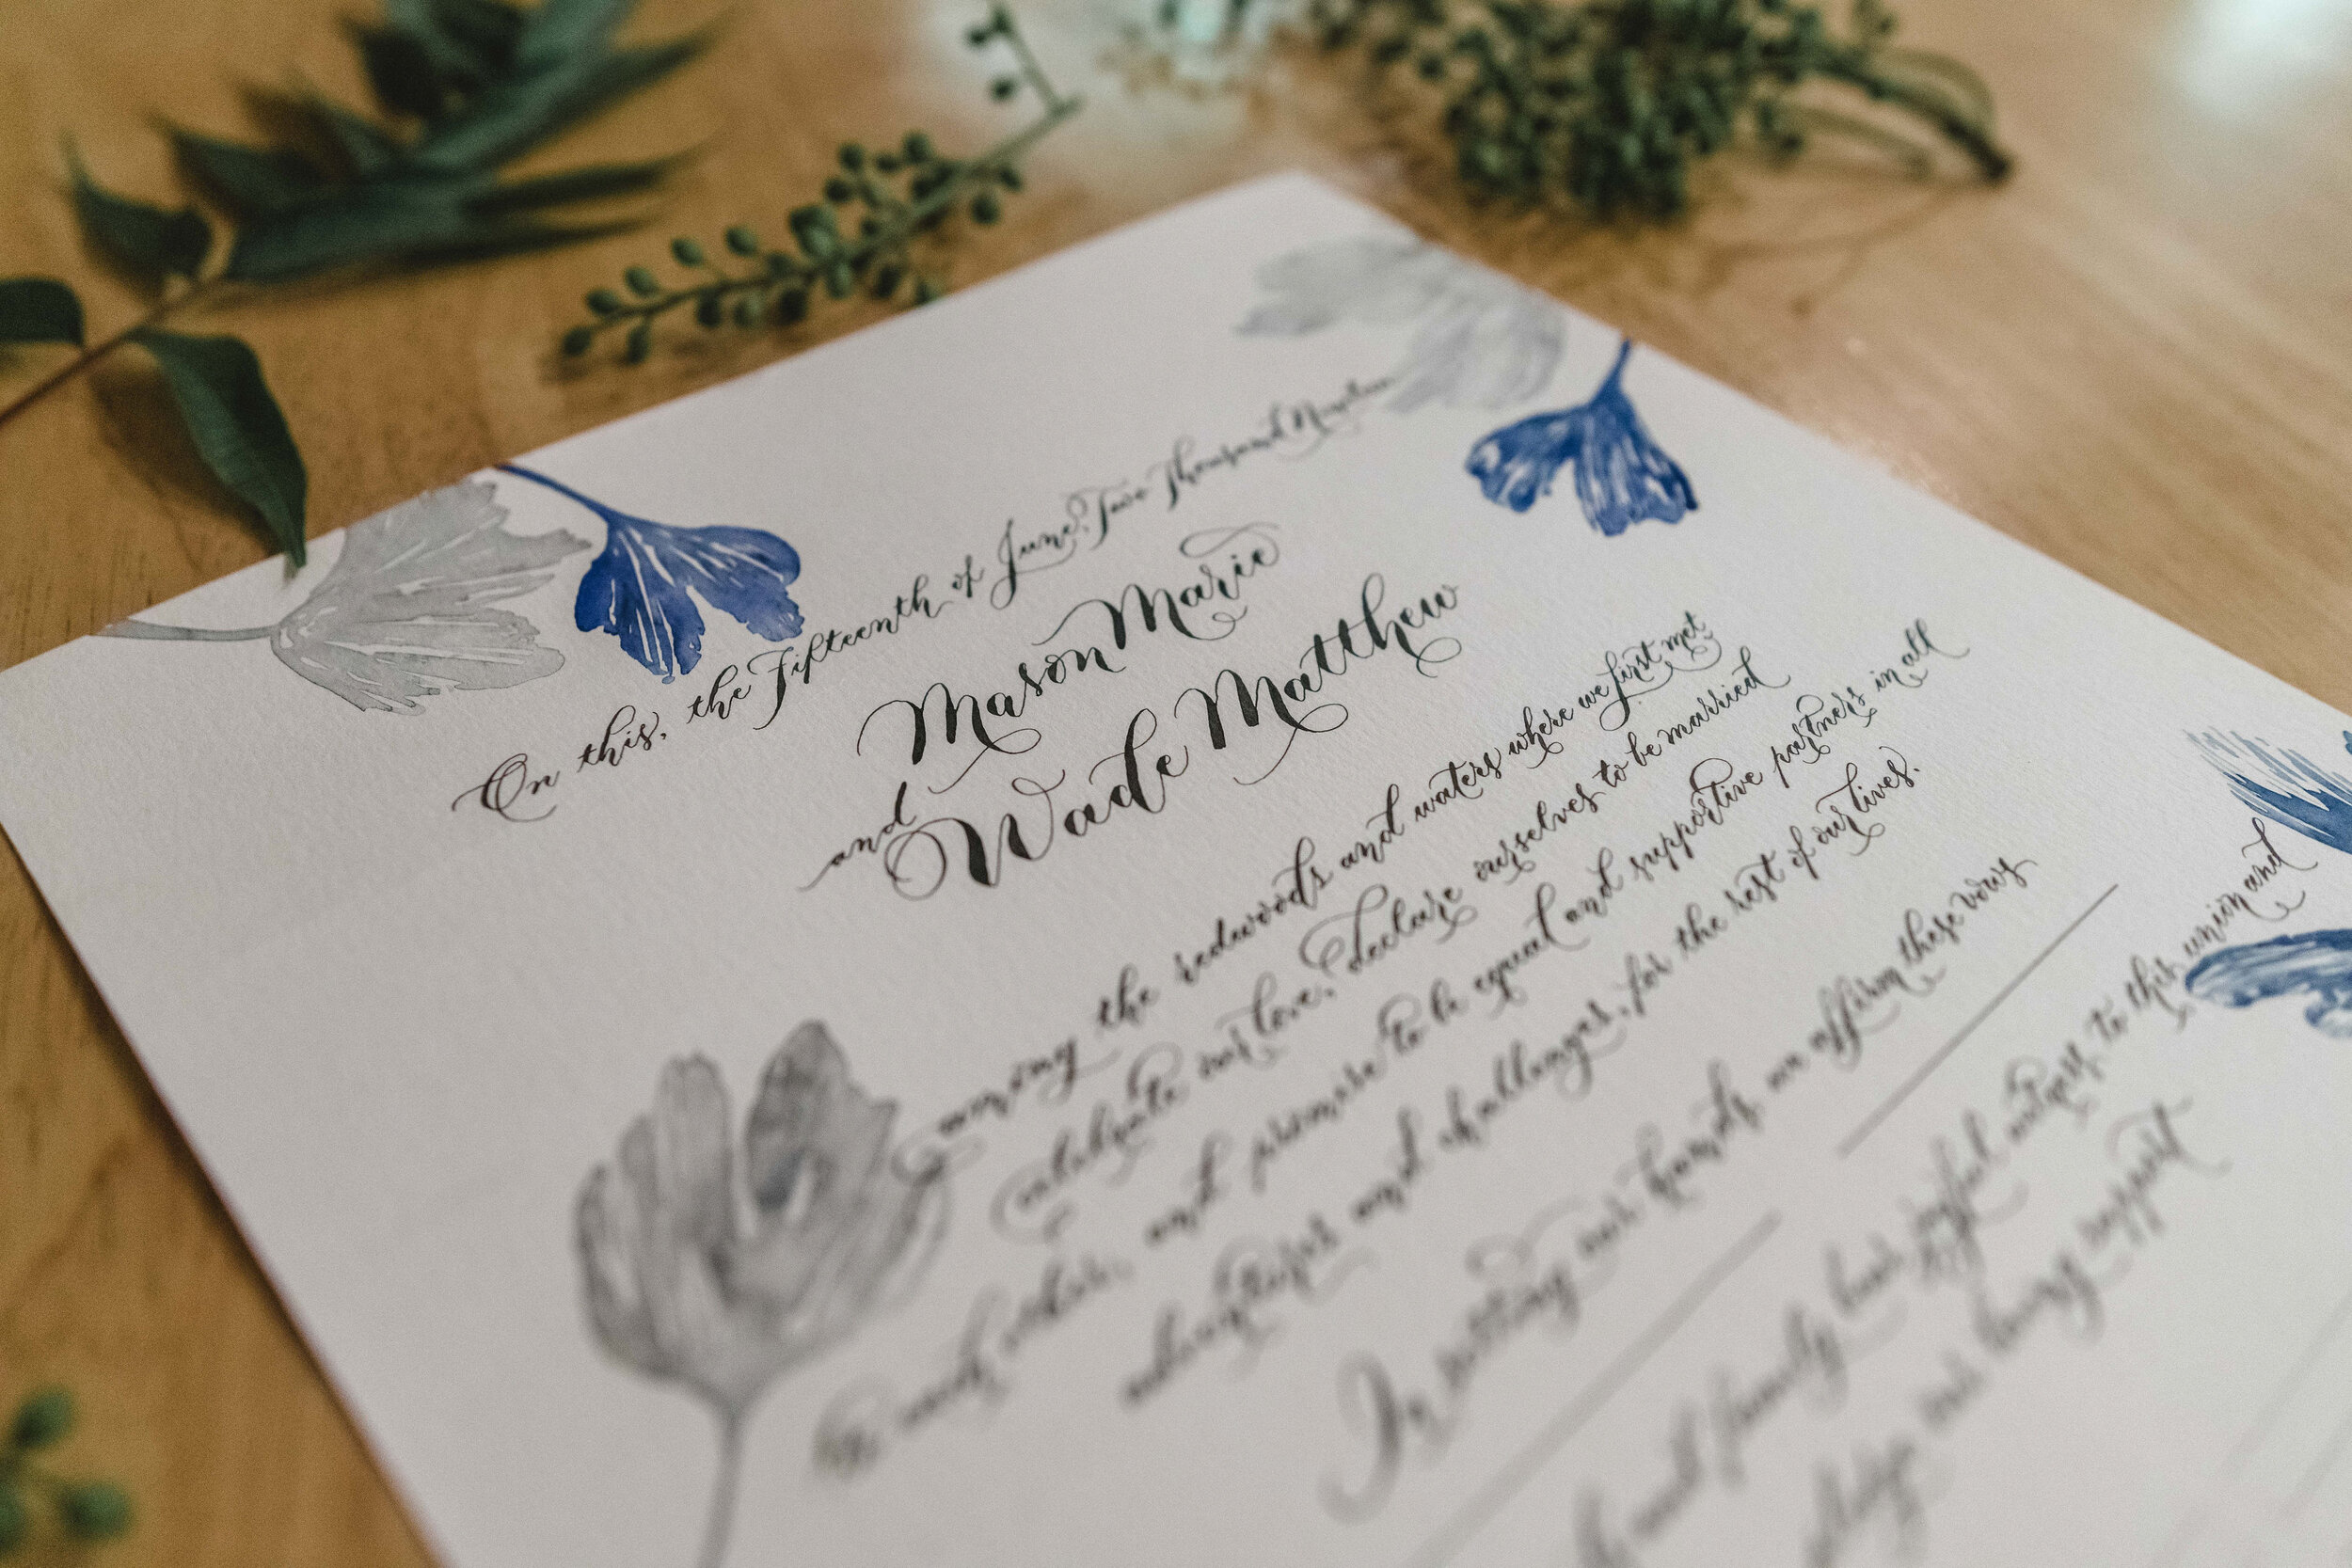 On this, the Fifteenth of June, Two Thousand Nineteen
Mason Marie
and Wade Matthew
among the redwoods and waters where we first met
celebrate our love, declare ourselves to be married
to each other, and promise to be equal and supportive partners in all
adventures and challenges, for the rest of our lives.
In setting our hands, we affirm these vows
and family bear joyful witness to this union and
pledge our loving support